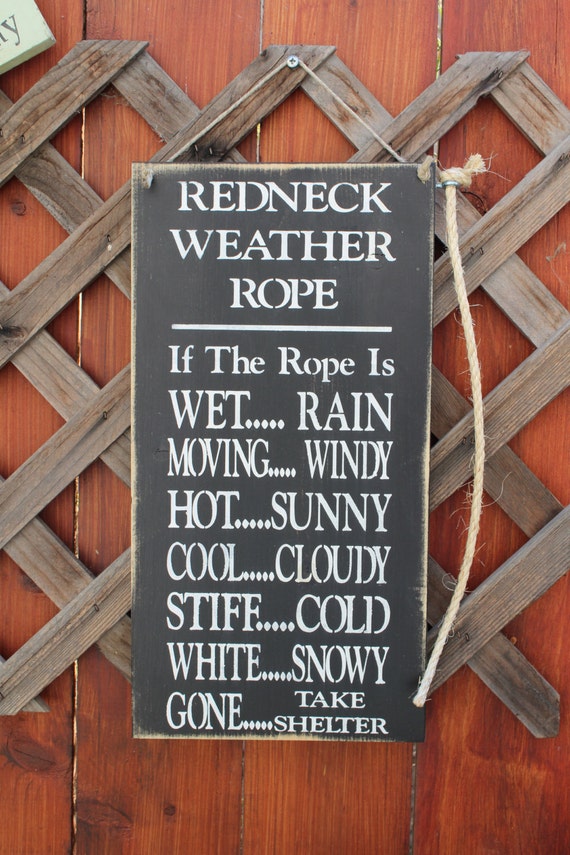 REDNECK
WEATHER
ROPE
If The Rope Is
WET..... RAIN
MOVING..... WINDY
HOT.....SUNNY
COOL.....CLOUDY
STIFF.....COLD
WHITE.....SNOWY
GONE.....TAKE SHELTER